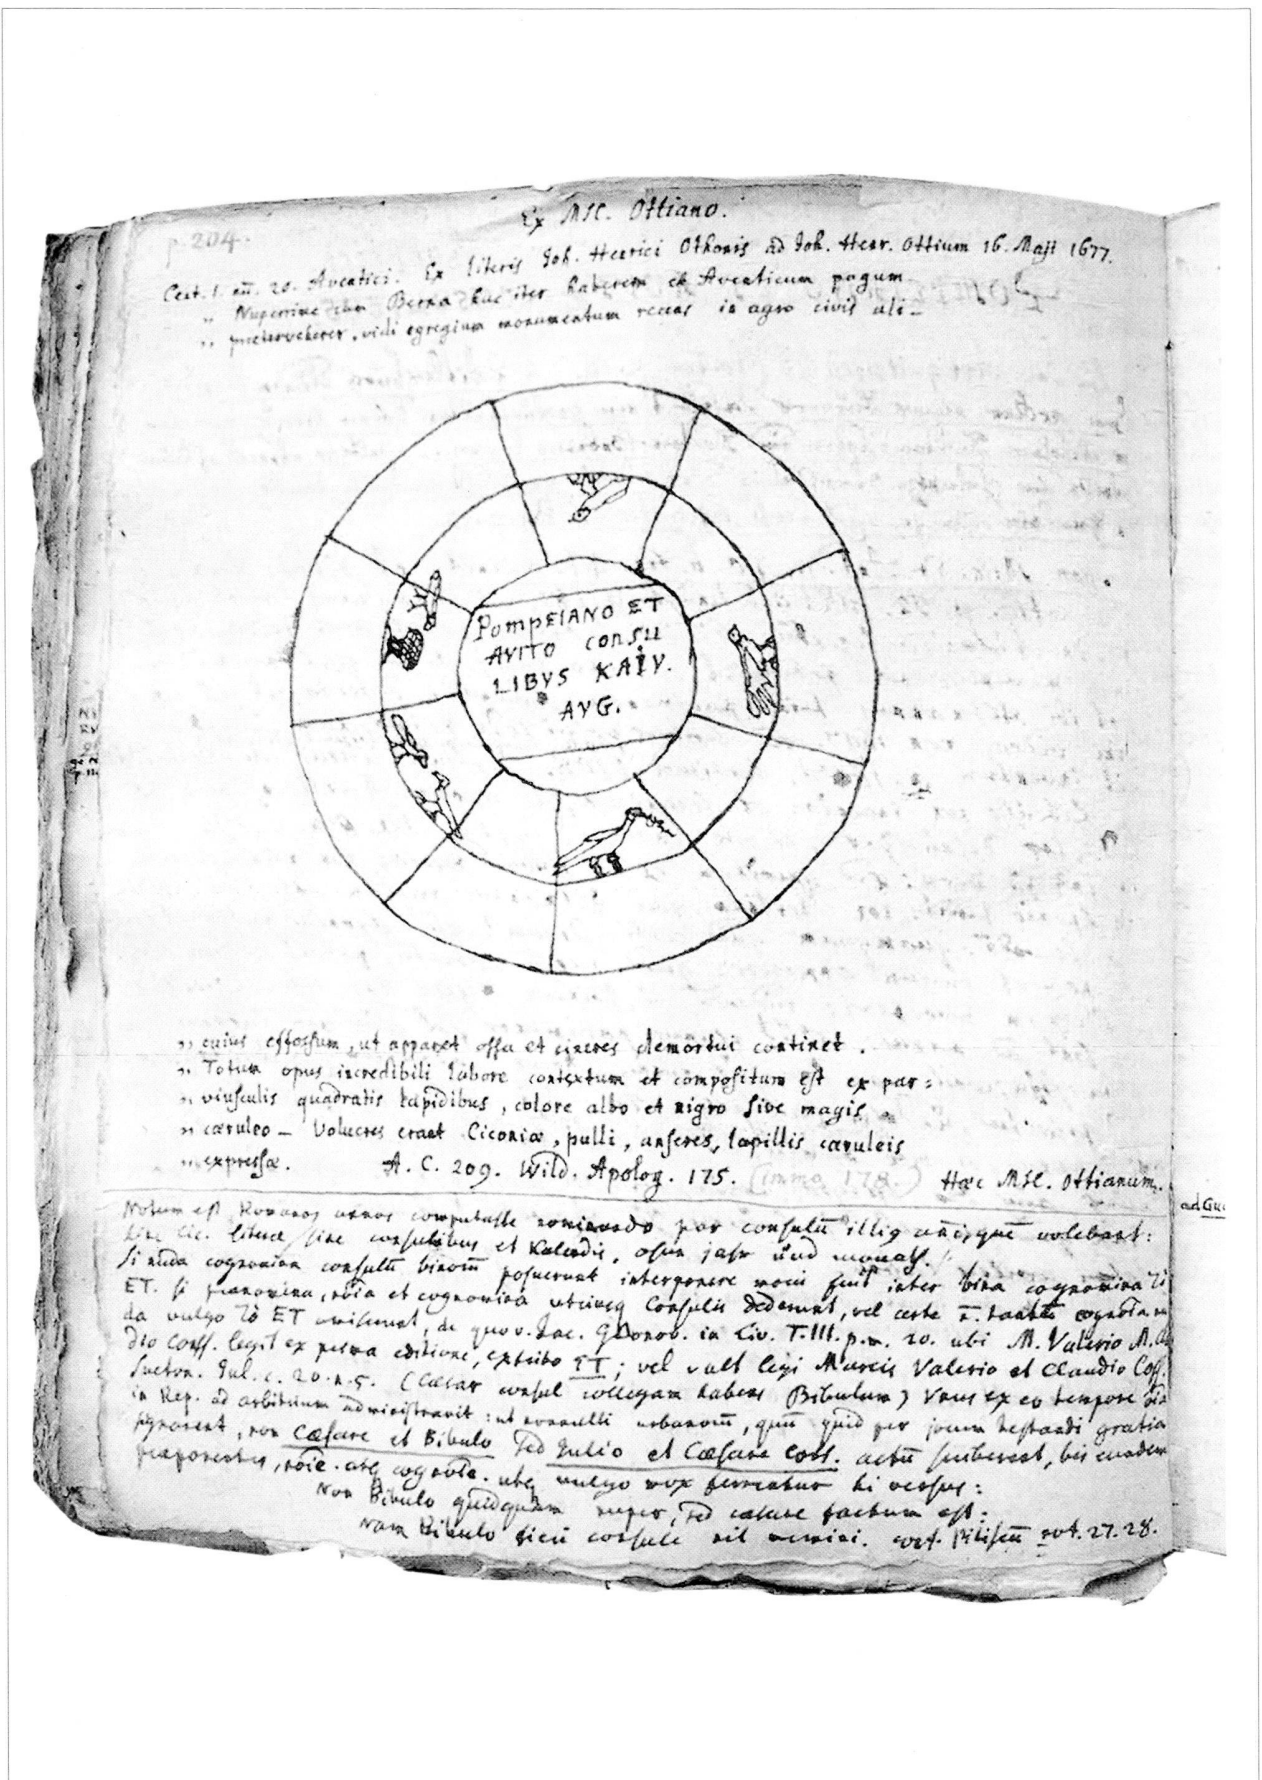 Ex MSC. Ottiano.
p. 204.
Cent. 1. nū. 20. Aventici. Ex literis Joh. Henrici Othonis ad Joh. Henr. Ottium 16. Maji 1677.
„ Nuperrime cum Berna huc iter haberem et Aventicum pagum
„ praeterveherer, vidi egregium monumentum recens in agro civis ali-
POMPEIANO ET
AVITO CONSU
LIBVS KAIV.
AVG.
„ cuius effossum, ut apparet ossa et cineres demortui continet.
„ Totum opus incredibili labore contextum et compositum est ex par=
„ viusculis quadratis lapidibus, colore albo et nigro sive magis
„ caeruleo – Volucres erant Ciconiae, pulli, anseres, lapillis caeruleis
„ expressae. A. C. 209. Wild. Apolog. 175. (immo 178.) Haec MSC. Ottianum.
Notum est Romanos annos computasse nominando par consulū illiq anni, quē volebant:
sine consulibus et Kalendis,
Si nuda cognomina consulū posuerunt interponere inter bina cognomina
ET. si praenomina, et cognomina utriusq Consulis dederunt, vel certe
da vulgo ET omiserunt, de quo v. Jac. Gronov. in Liv. T. III. p. m. 20. ubi M. Valerio M.
dio Coss. legit ex editione, ET; vel vult legi Marcis Valerio et Claudio Coss.
Sueton. Jul. c. 20. n. 5. (Caesar consul collegam habens Bibulum) Unus ex eo tempore
in Rep. ad arbitrium administravit: ut nonnulli urbanorū, quū quid per jocum testandi gratia
signarent, non Caesare et Bibulo sed Julio et Caesare Coss. actū scriberent, bis eundem
praeponentes, utq vulgo mox ferrentur hi versus:
Non Bibulo quidquam nuper, sed Caesare factum est:
Nam Bibulo fieri consule nil memini. Pitiscū not. 27. 28.